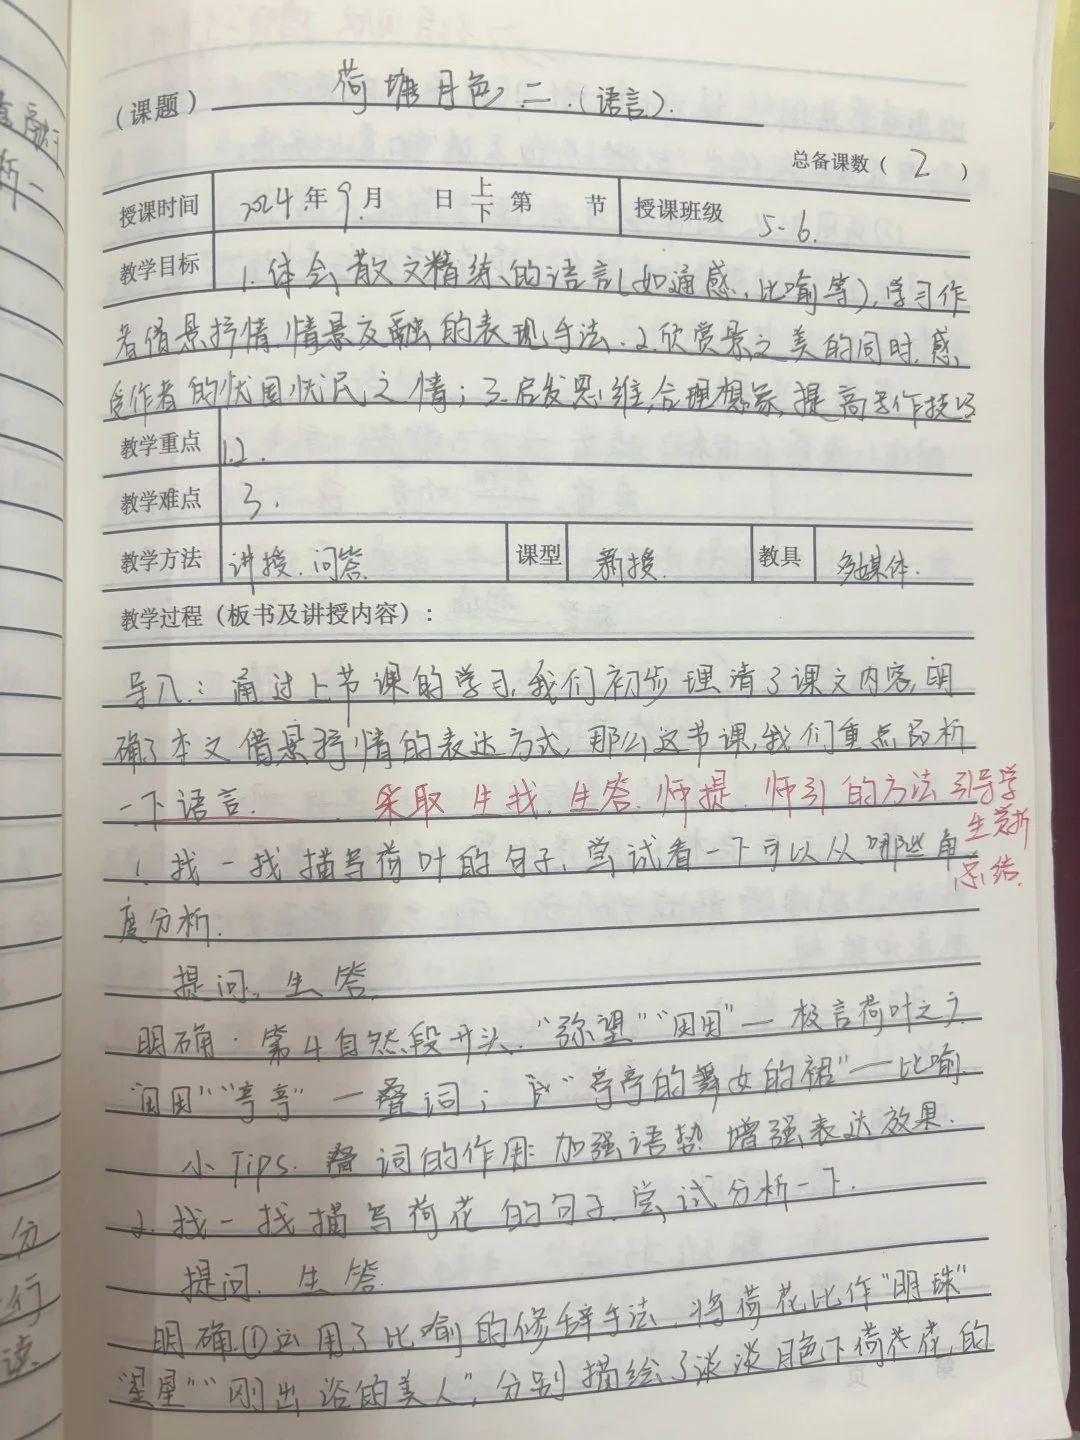 （课题） 荷塘月色 二.（语言）.
总备课数（ 2 ）
授课时间 2024年9月 日 上下 第 节 授课班级 5-6.
教学目标 1.体会散文精练的语言(如通感、比喻等),学习作
者借景抒情,情景交融的表现手法.2.欣赏景之美的同时,感
受作者的忧国忧民之情;3.启发思维,合理想象,提高写作技巧
教学重点 1.2.
教学难点 3.
教学方法 讲授.问答. 课型 新授. 教具 多媒体.
教学过程（板书及讲授内容）：
导入:通过上节课的学习,我们初步理清了课文内容,明
确了本文借景抒情的表达方式,那么这节课,我们重点品析
一下语言. 采取 生找.生答.师提.师引的方法引导学
生赏析
总结.
1.找一找描写荷叶的句子,尝试看一下可以从哪些角
度分析.
提问,生答.
明确.第4自然段开头."弥望""田田"—极言荷叶之广.
"田田""亭亭"—叠词; "亭亭的舞女的裙"—比喻.
小Tips.叠词的作用:加强语势 增强表达效果.
2.找一找描写荷花的句子.尝试分析一下.
提问.生答.
明确.①运用了比喻的修辞手法,将荷花比作"明珠"
"星星""刚出浴的美人",分别描绘了淡淡月色下荷花 的
第 页
分
行
读